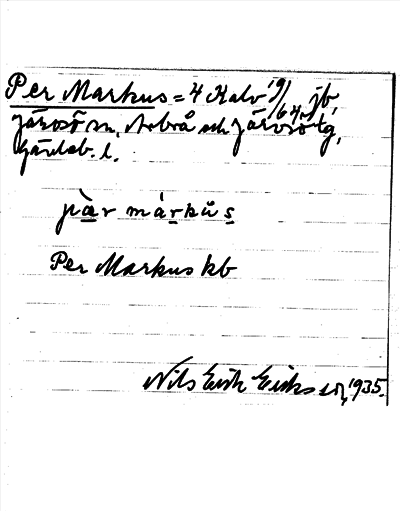 Per Markus = 4 Kalv 19/64, jb,
Järvsö sn, Arbrå och Järvsö tg,
Gävleb. l.
pær márkùs
Per Markus kb
Nils Erik Eriksson, 1935.